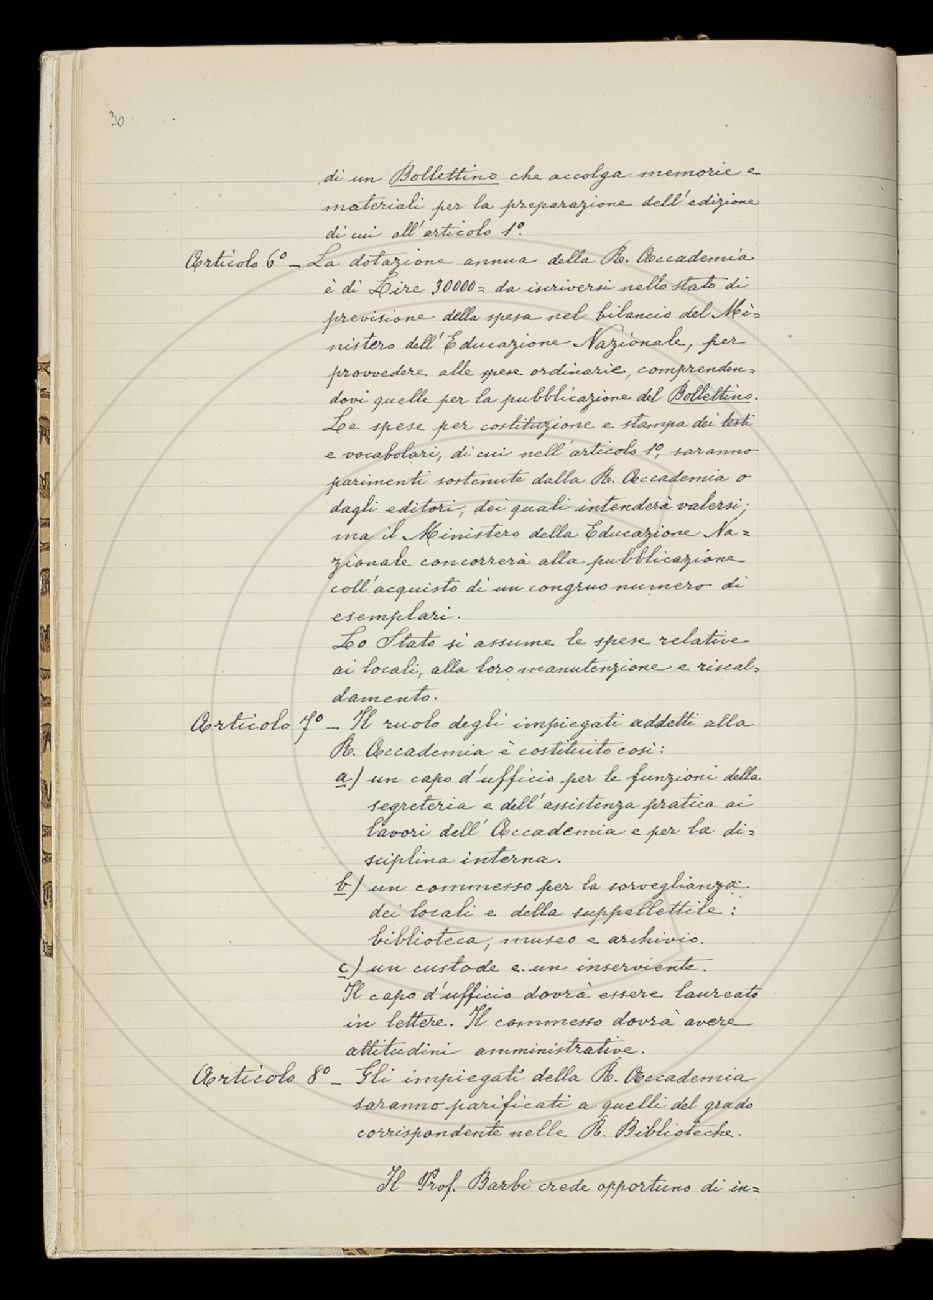 30
di un Bollettino che accolga memorie e
materiali per la preparazione dell'edizione
di cui all'articolo 1º.
Articolo 6º - La dotazione annua della R. Accademia
è di Lire 30000= da iscriversi nello stato di
previsione della spesa nel bilancio del Mi=
nistero dell'Educazione Nazionale, per
provvedere alle spese ordinarie, comprenden=
dovi quelle per la pubblicazione del Bollettino.
Le spese per costituzione e stampa dei testi
e vocabolari, di cui nell'articolo 1º, saranno
parimenti sostenute dalla R. Accademia o
dagli editori, dei quali intenderà valersi;
ma il Ministero della Educazione Na=
zionale concorrerà alla pubblicazione
coll'acquisto di un congruo numero di
esemplari.
Lo Stato si assume le spese relative
ai locali, alla loro manutenzione e riscal=
damento.
Articolo 7º - Il ruolo degli impiegati addetti alla
R. Accademia è costituito così:
a) un capo d'ufficio per le funzioni della
segreteria e dell'assistenza pratica ai
lavori dell'Accademia e per la di=
sciplina interna.
b) un commesso per la sorveglianza
dei locali e della suppellettile:
biblioteca, museo e archivio.
c) un custode e un inserviente.
Il capo d'ufficio dovrà essere laureato
in lettere. Il commesso dovrà avere
attitudini amministrative.
Articolo 8º - Gli impiegati della R. Accademia
saranno parificati a quelli del grado
corrispondente nelle R. Biblioteche.
Il Prof. Barbi crede opportuno di in=